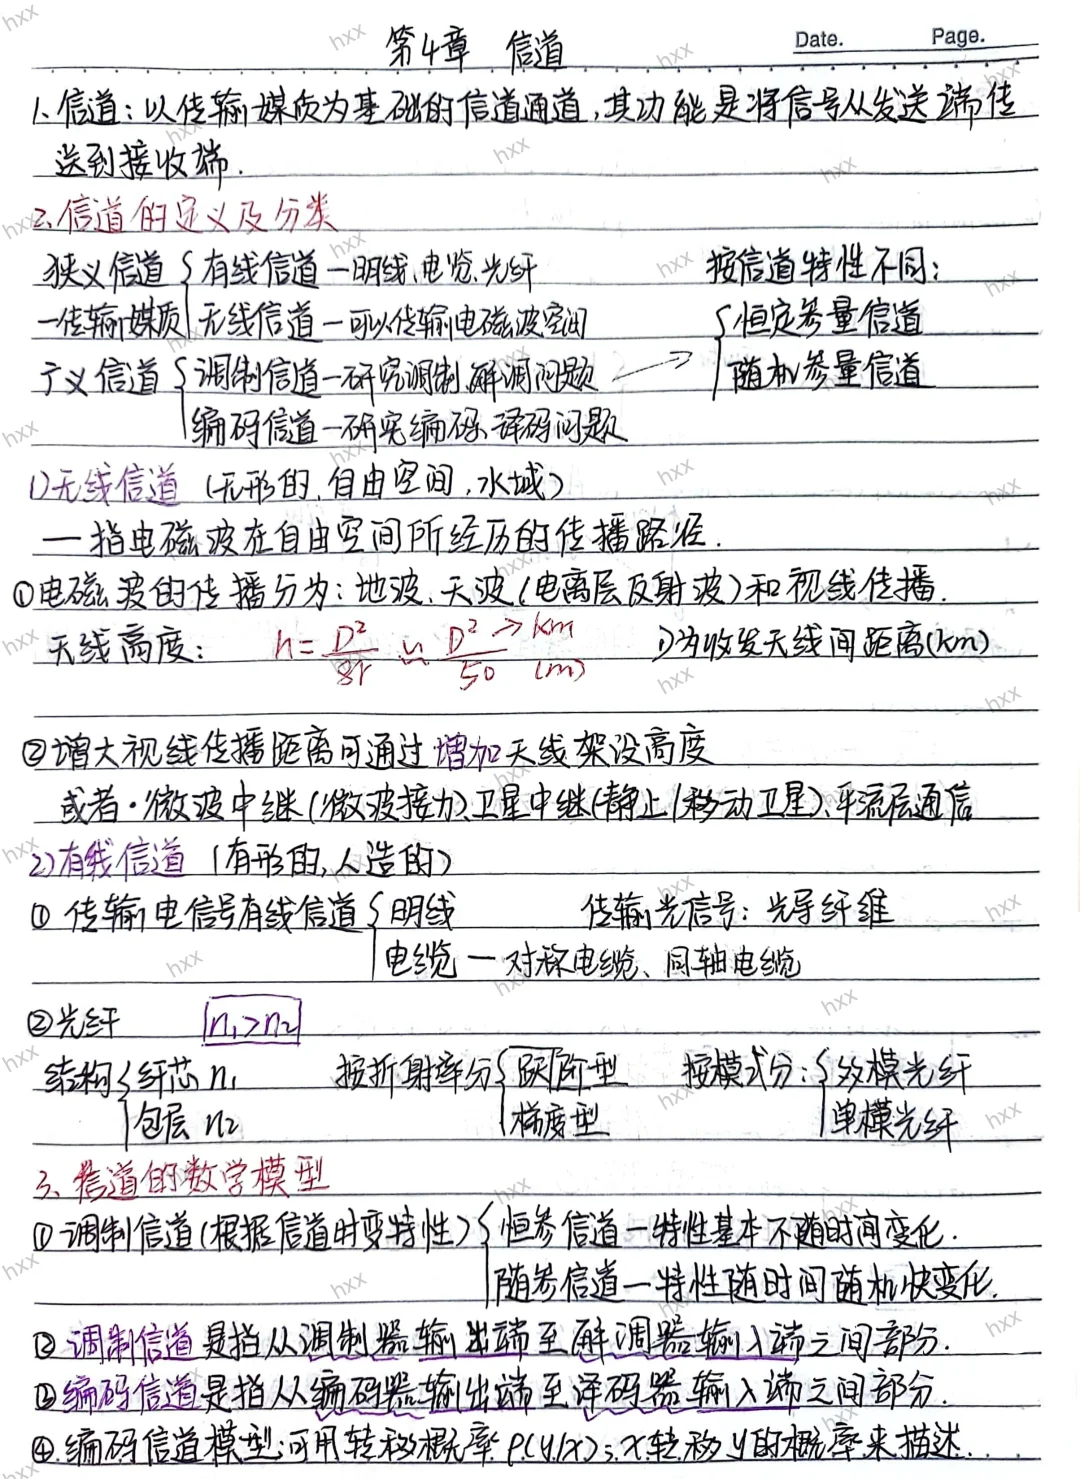 Date. Page.
第4章 信道
1、信道：以传输媒质为基础的信道通道，其功能是将信号从发送端传
送到接收端.
2、信道的定义及分类
狭义信道 { 有线信道—明线、电览、光纤 按信道特性不同：
—传输媒质 无线信道—可以传输电磁波空间 { 恒定参量信道
广义信道 { 调制信道—研究调制、解调问题 → 随机参量信道
编码信道—研究编码、译码问题
1)无线信道 (无形的、自由空间，水域)
— 指电磁波在自由空间所经历的传播路径.
①电磁波的传播分为：地波、天波(电离层反射波)和视线传播.
天线高度： h=D²/8r ≈ D²/50 → km (m) D为收发天线间距离(km)
②增大视线传播距离可通过增加天线架设高度
或者·微波中继(微波接力)、卫星中继(静止/移动卫星)、平流层通信
2)有线信道 (有形的,人造的)
① 传输电信号有线信道 { 明线 传输光信号：光导纤维
电缆—对称电缆、同轴电缆
②光纤 n₁>n₂
结构 { 纤芯 n₁ 按折射率分 { 跃阶型 按模式分：{ 多模光纤
包层 n₂ 梯度型 单模光纤
3、信道的数学模型
①调制信道(根据信道时变特性) { 恒参信道—特性基本不随时间变化.
随参信道—特性随时间随机快变化.
② 调制信道是指从调制器输出端至解调器输入端之间部分.
③编码信道是指从编码器输出端至译码器输入端之间部分.
④.编码信道模型:可用转移概率 P(y/x);x转移y的概率来描述.
hxx